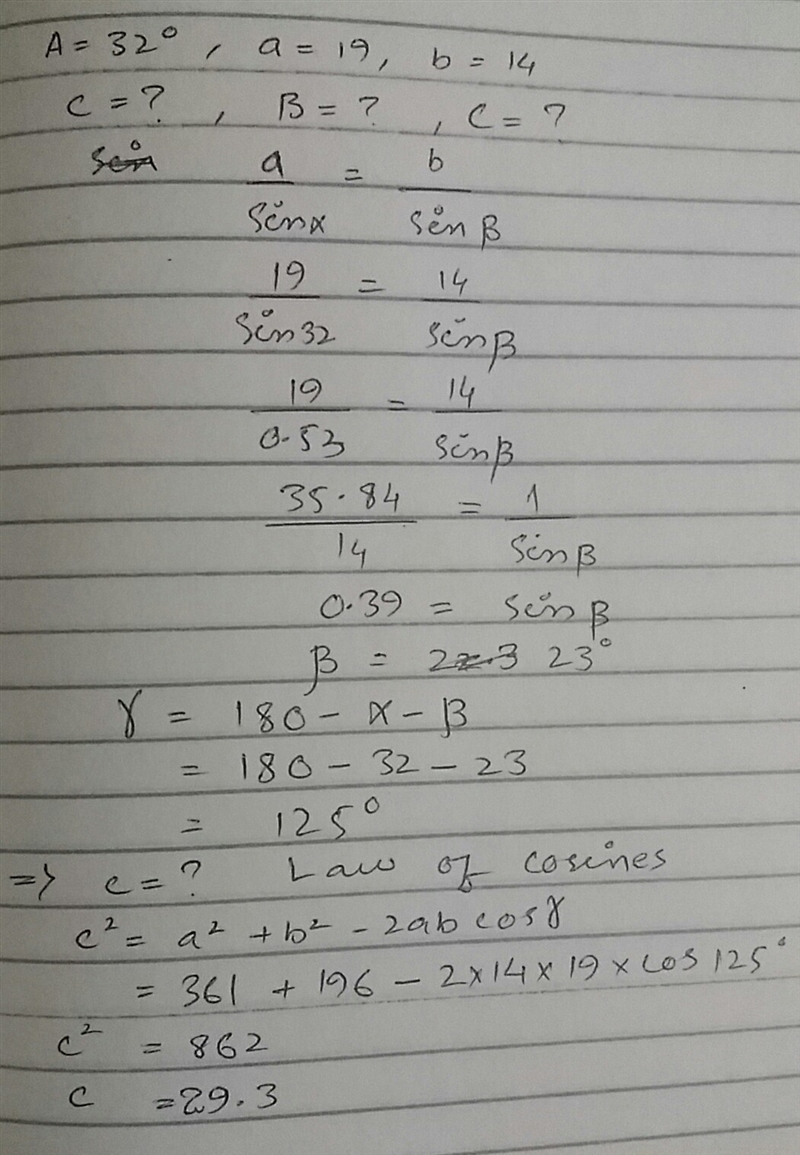 A = 32°, a = 19, b = 14
c = ?, B = ?, C = ?
sin a/sinα = b/sinβ
19/sin32 = 14/sinβ
19/0.53 = 14/sinβ
35.84/14 = 1/sinβ
0.39 = sinβ
β = 22.3 23°
γ = 180 - α - β
= 180 - 32 - 23
= 125°
=> c = ? Law of cosines
c² = a² + b² - 2ab cosγ
= 361 + 196 - 2×14×19×cos 125°
c² = 862
c = 29.3